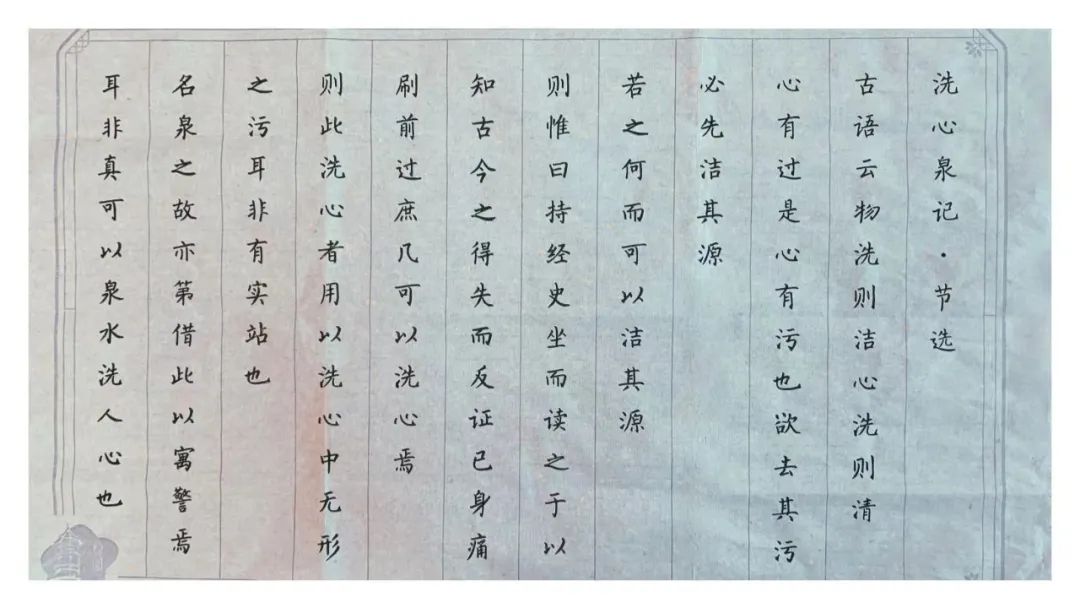 洗心泉记·节选
古语云物洗则洁心洗则清
心有过是心有污也欲去其污
必先洁其源
若之何而可以洁其源
则惟曰持经史坐而读之于以
知古今之得失而反证已身痛
刷前过庶几可以洗心焉
则此洗心者用以洗心中无形
之污耳非有实站也
名泉之故亦第借此以寓警焉
耳非真可以泉水洗人心也